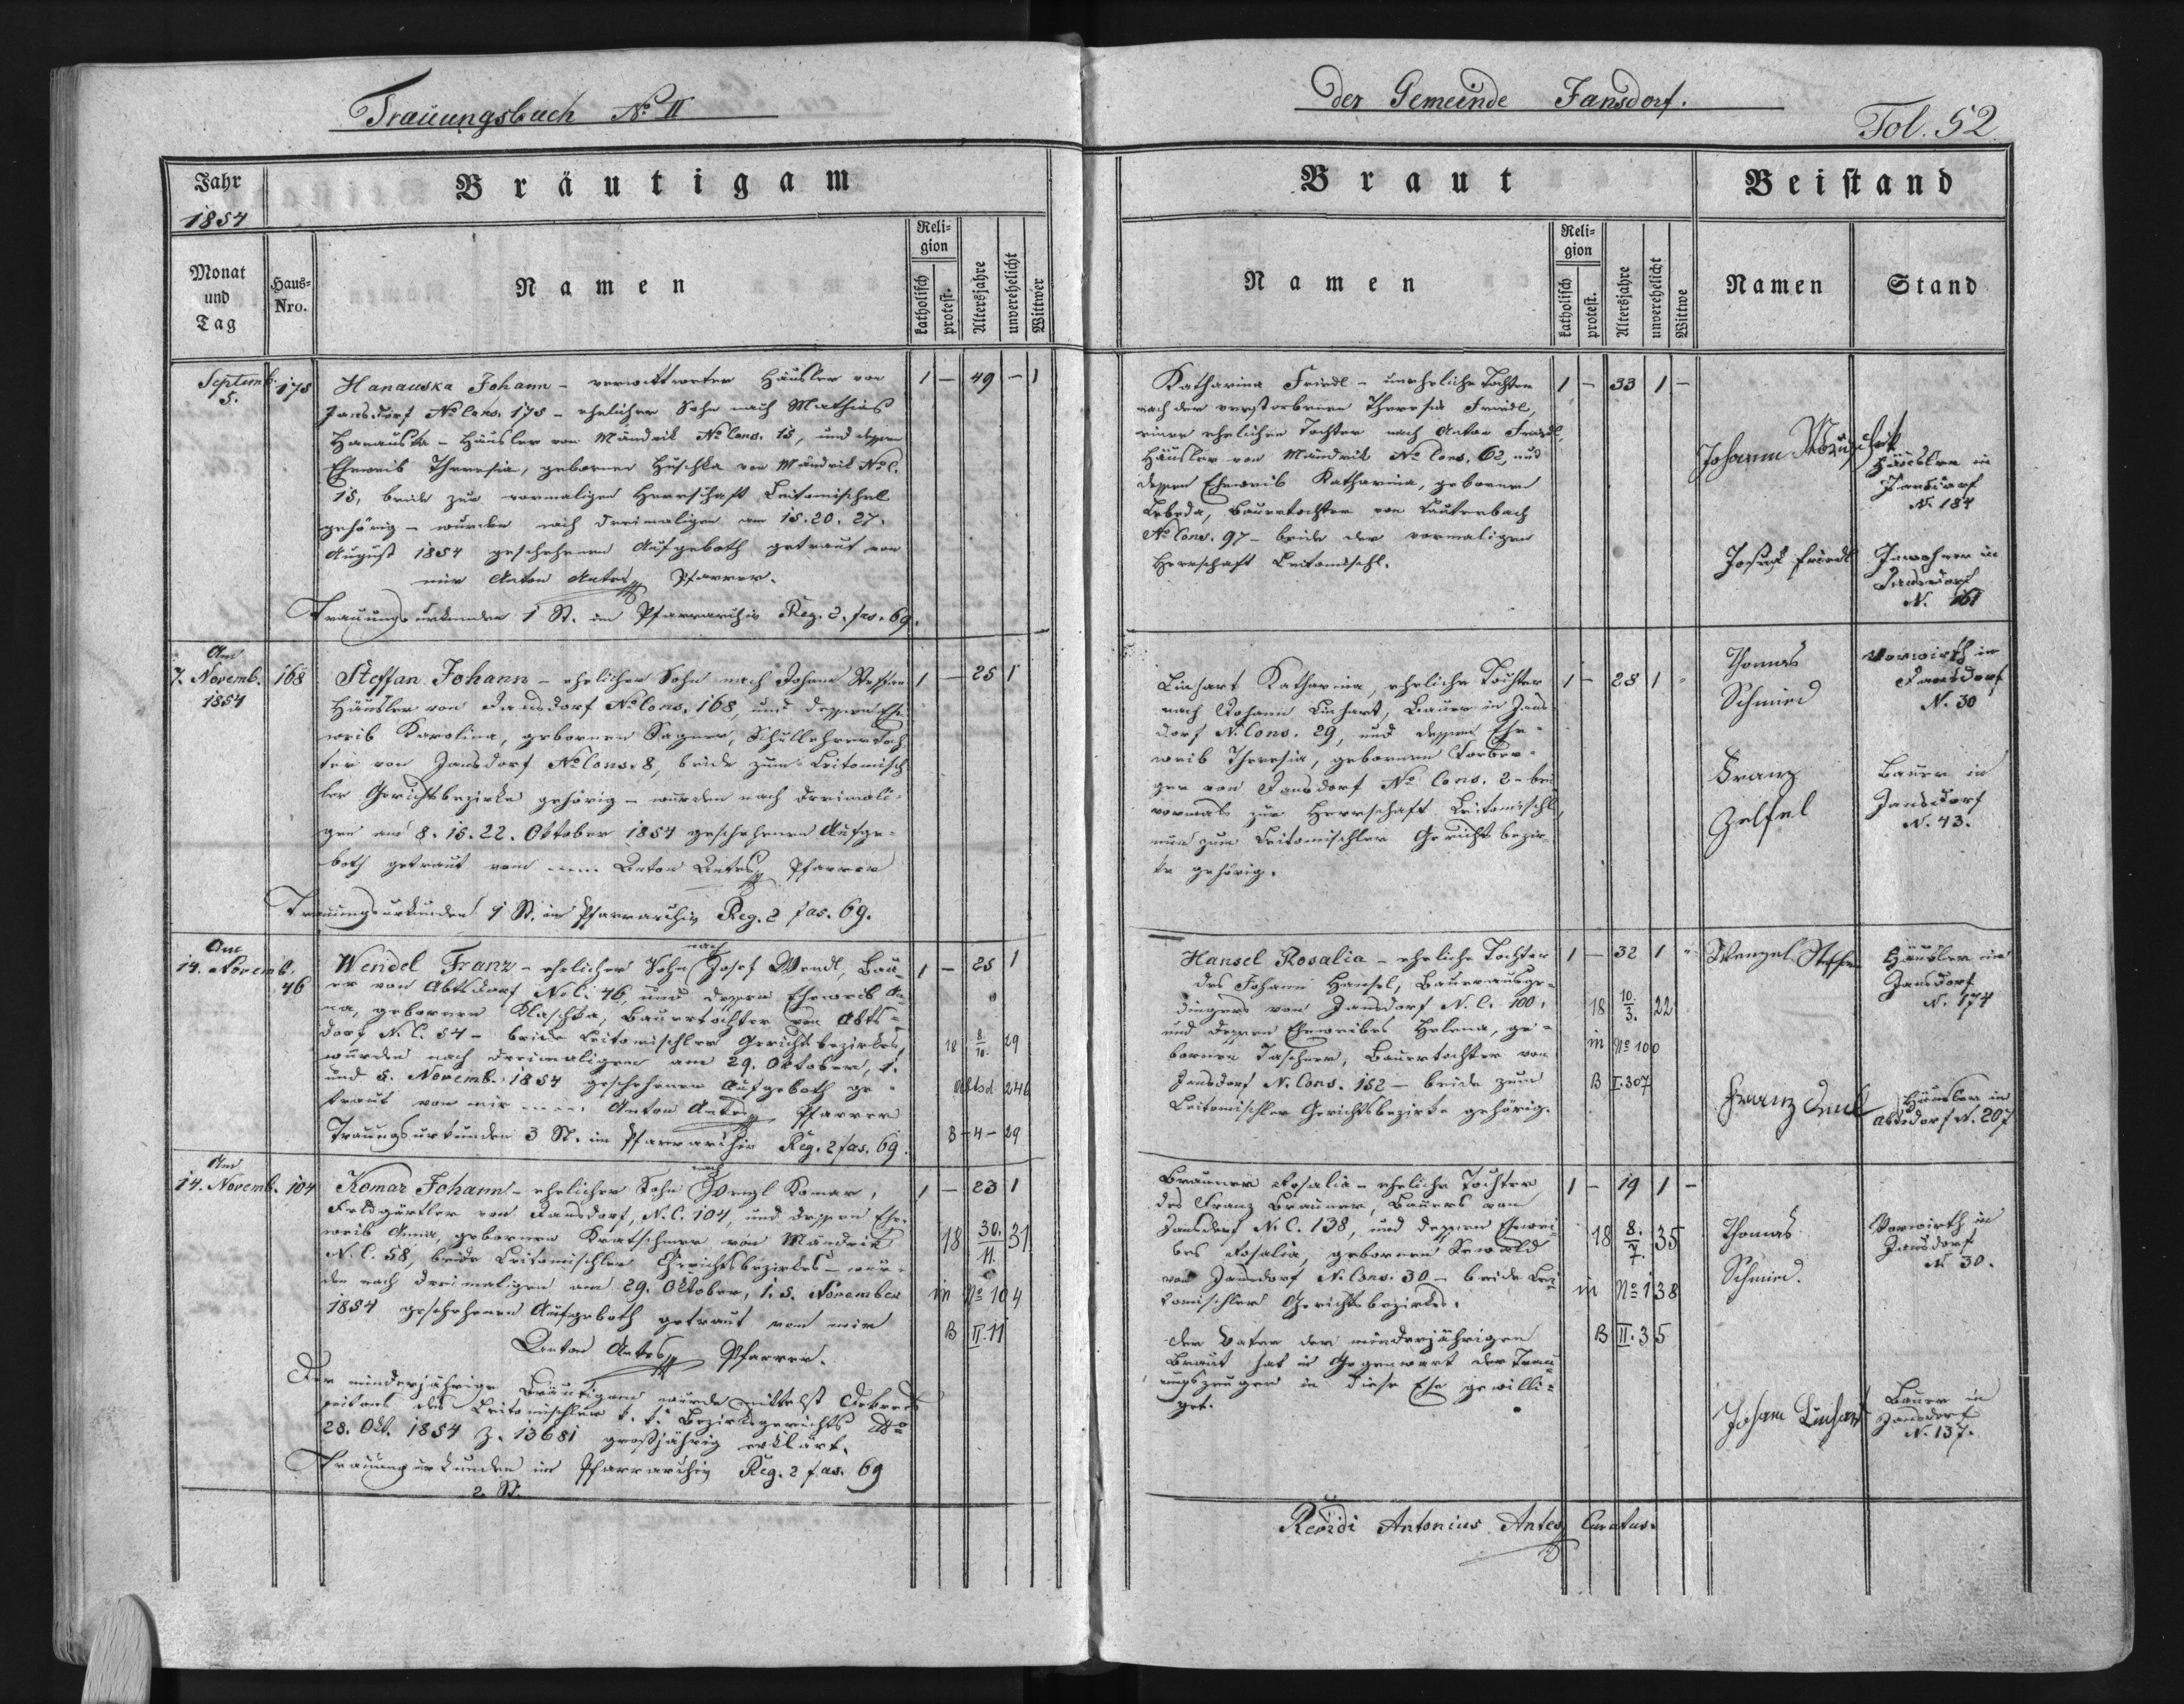 Trauungsbuch No II
der Gemeinde Jansdorf.
Fol. 52
Jahr
1854
Bräutigam
Monat
und
Tag
Haus-
Nro.
Namen
Reli-
gion
katholisch
protest.
Altersjahre
unverehelicht
Wittwer
Braut
Namen
Reli-
gion
katholisch
protest.
Altersjahre
unverehelicht
Wittwe
Beistand
Namen
Stand
Septemb.
5.
175
Hanauska Johann – verwittweter Häusler von
Jansdorf No Cons. 175 – ehelicher Sohn nach Mathias
Hanauska – Häusler von Mändrik No Cons. 15, und dessen
Eheweib Theresia, geborenen Huschka von Mändrik No C.
15, beide zur vormaligen Herrschaft Leitomischel
gehörig – wurden nach dreimaligen am 15. 20. 27.
August 1854 geschehenen Aufgeboth getraut von
mir Anton Antes Pfarrer.
Trauungsurkunden 1 St. im Pfarrarchiv Reg. 2. fas. 69.
1 – 49 – 1
Katharina Friedl – uneheliche Tochter
nach der verstorbenen Theresia Friedl,
einer ehelichen Tochter nach Anton Friedl,
Häusler von Mändrik No Cons. 62, und
dessen Eheweib Katharina, geborenen
Lebeda, Bauertochter von Lauterbach
No Cons. 97 – beide der vormaligen
Herrschaft Leitomischl.
1 – 33 1 –
Johann
Häusler in
Jansdorf
N. 184
Josef Friedl
Inwohner in
Jansdorf
N. 161
Am
7. Novemb.
1854
168
Steffan Johann – ehelicher Sohn nach Johann Steffan
Häusler von Jansdorf No Cons. 168, und dessen Ehe-
weib Karolina, geborenen Sagner, Schullehrertoch
ter von Jansdorf No Cons. 8, beide zum Leitomisch
ler Gerichtsbezirke gehörig – wurden nach dreimali-
gen am 8. 15. 22. Oktober 1854 geschehenen Aufge-
both getraut vom .... Anton Antes Pfarrer
Trauungsurkunden 1 St. im Pfarrarchiv Reg. 2 fas. 69.
1 – 25 1
Linhart Katharina, eheliche Tochter
nach Johann Linhart, Bauer in Jans
dorf N. Cons. 29, und dessen Ehe-
weib Theresia, geborenen Forber-
ger von Jansdorf No Cons. 2 – bei
vormals zur Herrschaft Leitomischl,
nun zum Leitomischler Gerichtsbezir-
ke gehörig.
1 – 28 1
Thomas
Schmied
Vorwirth in
Jansdorf
N. 30
Franz
Bauer in
Jansdorf
N. 43.
Am
14. Novemb.
46
Wendel Franz – ehelicher Sohn nach Josef Wendl, Bau-
er von Abtsdorf No C. 46, und dessen Eheweib An-
na, geborenen Klaschka, Bauertochter von Abts-
dorf N. C. 54 – beide Leitomischler Gerichtsbezirkes,
wurden nach dreimaligen am 29. Oktober, 1.
und 5. Novemb. 1854 geschehenen Aufgeboth ge-
traut von mir .... Anton Antes Pfarrer
Trauungsurkunden 3 St. im Pfarrarchiv Reg. 2 fas. 69.
1 – 25 1
18 8/10. 29
Abtsd 246
B – 4 – 29
Hansel Rosalia – eheliche Tochter
des Johann Hansel, Bauerausge-
dingers von Jansdorf N. C. 100,
und dessen Eheweibes Helena, ge-
borenen Taschner, Bauertochter von
Jansdorf N. Cons. 152 – beide zum
Leitomischler Gerichtsbezirke gehörig.
1 – 32 1
18 10./3. 22
in No 100
B I. 307
Wenzel Steffan
Häusler in
Jansdorf
N. 174
Franz
Häusler in
Abtsdorf N. 207
Am
14. Novemb.
104
Komar Johann – ehelicher Sohn nach Wenzl Komar,
Feldgärtler von Jansdorf, N. C. 104, und dessen Ehe-
weib Anna, geborenen Kratschmer von Mändrik
N. C. 58, beide Leitomischler Gerichtsbezirkes – wur-
den nach dreimaligen am 29. Oktober, 1. 5. November
1854 geschehenen Aufgeboth getraut von mir
Anton Antes Pfarrer.
Der minderjährige Bräutigam wurde mittelst Dekrets
seitens des Leitomischler k. k. Bezirksgerichts dto
28. Okt. 1854 Z. 13681 großjährig erklärt.
Trauungsurkunden im Pfarrarchiv Reg. 2 fas. 69
2. St.
1 – 23 1
18 30./11. 31
in No 104
B II. 11
Brauner Rosalia – eheliche Tochter
des Franz Brauner, Bauers von
Jansdorf N. C. 138, und dessen Ehewei-
bes Rosalia, geborenen Sewald
von Jansdorf N. Cons. 30 – beide Lei-
tomischler Gerichtsbezirkes.
Der Vater der minderjährigen
Braut hat in Gegenwart der Trau-
ungszeugen in diese Ehe gewilli-
get.
1 – 19 1 –
18 8./7. 35
in No 138
B II. 35
Thomas
Schmied.
Vorwirth in
Jansdorf
N. 30.
Johann Linhart
Bauer in
Jansdorf
N. 137.
Revidi Antonius Antes Curatus.